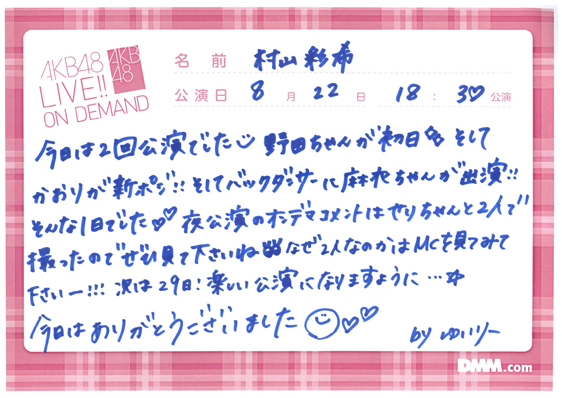 AKB48
LIVE!!
ON DEMAND
AKB
48
名 前 村山彩希
公演日 8 月 22 日 18 : 30 公演
今日は2回公演でした 野田ちゃんが初日 そして
かおりが新ポジ!! そしてバックダンサーに麻衣ちゃんが出演!!
そんな1日でした♡♡ 夜公演のオンデマコメントはせりちゃんと2人で
撮ったのでぜひ見て下さいね なぜ2人なのかはMCを見てみて
下さいー!!! 次は29日! 楽しい公演になりますように…☆
今日はありがとうございました ♡♡
by ゆいりー
DMM.com